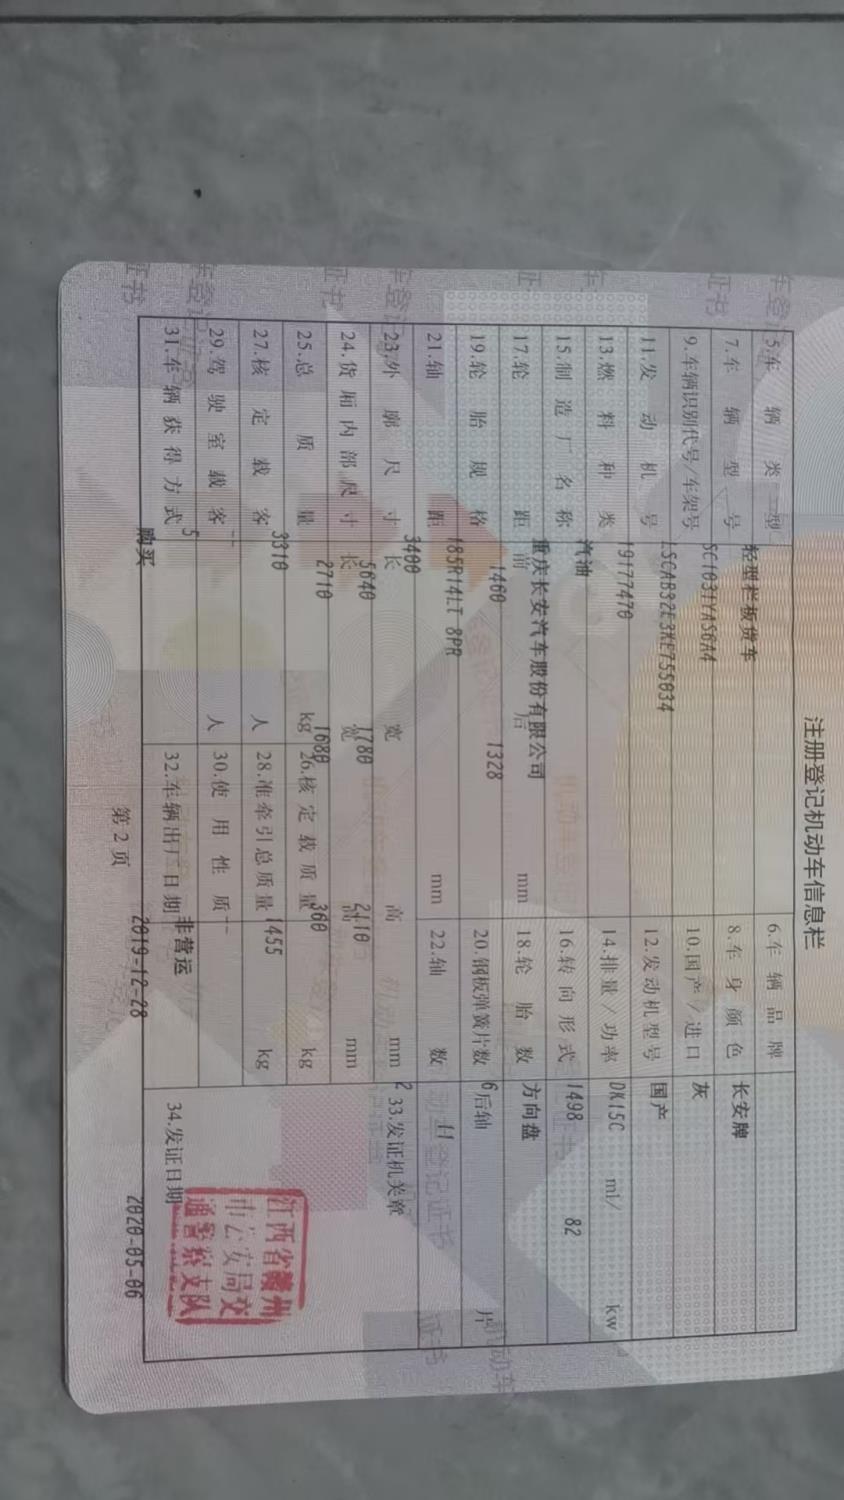 注册登记机动车信息栏
5.车辆类型 轻型栏板货车 6.车辆品牌 长安牌
7.车辆型号 SC1031YAS6A4 8.车身颜色 灰
9.车辆识别代号/车架号 LSCAB32E3KE755034 10.国产/进口 国产
11.发动机号 19177470 12.发动机型号 DK15C
13.燃料种类 汽油 14.排量/功率 1498 ml/ 82 kw
15.制造厂名称 重庆长安汽车股份有限公司 16.转向形式 方向盘
17.轮距 前 1460 后 1328 mm 18.轮胎数 6
19.轮胎规格 185R14LT 8PR 20.钢板弹簧片数 后轴 11 片
21.轴距 3400 mm 22.轴数 2
23.外廓尺寸 长 5640 宽 1780 高 2110 mm 33.发证机关章
24.货厢内部尺寸 长 2710 宽 1680 高 360 mm
25.总质量 3310 kg 26.核定载质量 1455 kg
27.核定载客 5 人 28.准牵引总质量 -- kg
29.驾驶室载客 -- 人 30.使用性质 非营运
31.车辆获得方式 购买 32.车辆出厂日期 2019-12-28 34.发证日期 2020-05-06
江西省赣州
市公安局交
通警察支队
第2页